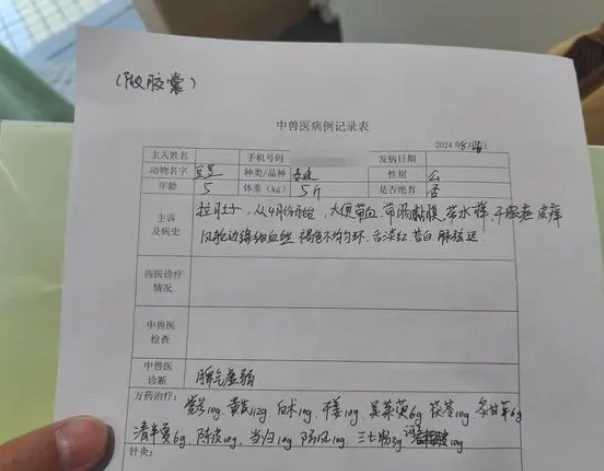 (做胶囊)
中兽医病例记录表
2024年5月
主人姓名 手机号码 发病日期
动物名字 豆豆 种类/品种 泰迪 性别 公
年龄 5 体重(kg) 5斤 是否绝育 否
主诉及病史 拉肚子，从4月份开始，大便带血、带肠黏膜、带水样、干呕 皮痒
边缘细血丝 褐色不均匀环、舌淡红、苔白、脉弦迟
西医诊疗情况
中兽医检查
中兽医诊断 脾气虚弱
方药治疗： 党参10g 黄芪12g 白术10g 干姜10g 吴茱萸6g 茯苓10g 炙甘草6g
清半夏6g 陈皮10g 当归10g 防风10g 三七粉3g 10g
针灸：